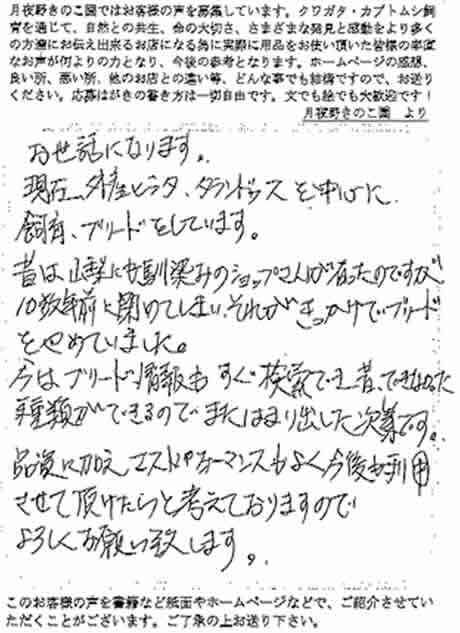 月夜野きのこ園ではお客様の声を募集しています。クワガタ・カブトムシ飼
育を通じて、自然との共生、命の大切さ、さまざまな発見と感動をより多く
の方達にお伝え出来るお店になる為に実際に用品をお使い頂いた皆様の率直
なお声が何よりの力となり、今後の参考となります。ホームページの感想、
良い所、悪い所、他のお店との違い等、どんな事でも結構ですので、お送り
ください。応募はがきの書き方は一切自由です。文でも絵でも大歓迎です！
月夜野きのこ園 より
お世話になります。
現在、外産ヒラタ、タランドゥス を中心に
飼育、ブリードをしています。
昔は山梨にも馴染みのショップさんが有ったのですが
10数年前に閉めてしまい、それがきっかけでブリード
をやめていました。
今はブリード情報もすぐ検索でき、昔、できなかった
種類ができるのでまたはまり出した次第です。
品質に加え、コストパフォーマンスもよく今後も利用
させて頂けたらと考えておりますので
よろしくお願い致します。
このお客様の声を書籍など紙面やホームページなどで、ご紹介させてい
ただくことがございます。ご了承の上お送り下さい。